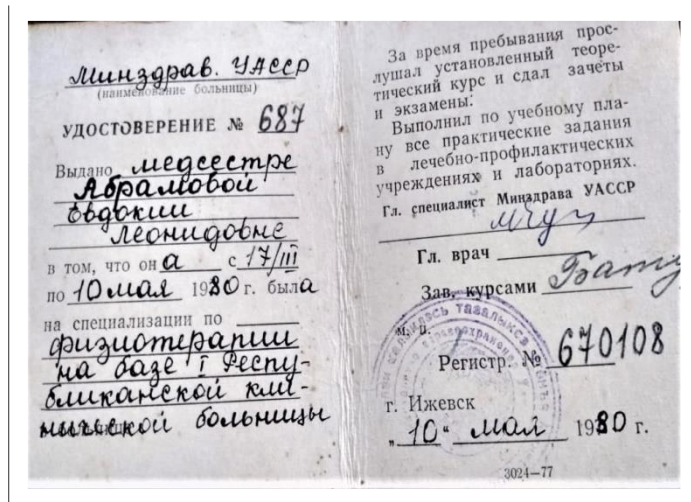 Минздрав. УАССР
(наименование больницы)
УДОСТОВЕРЕНИЕ № 687
Выдано медсестре
Абрамовой
Евдокии
Леонидовне
в том, что он а с 17/III
по 10 мая 1980 г. была
на специализации по
физиотерапии
на базе I Респу-
бликанской кли-
нической больницы
За время пребывания прос-
лушал установленный теоре-
тический курс и сдал зачеты
и экзамены.
Выполнил по учебному пла-
ну все практические задания
в лечебно-профилактических
учреждениях и лабораториях.
Гл. специалист Минздрава УАССР
Гл. врач
Зав. курсами
м. п.
Регистр. № 670108
г. Ижевск
„10“ мая 1980 г.
3024—77